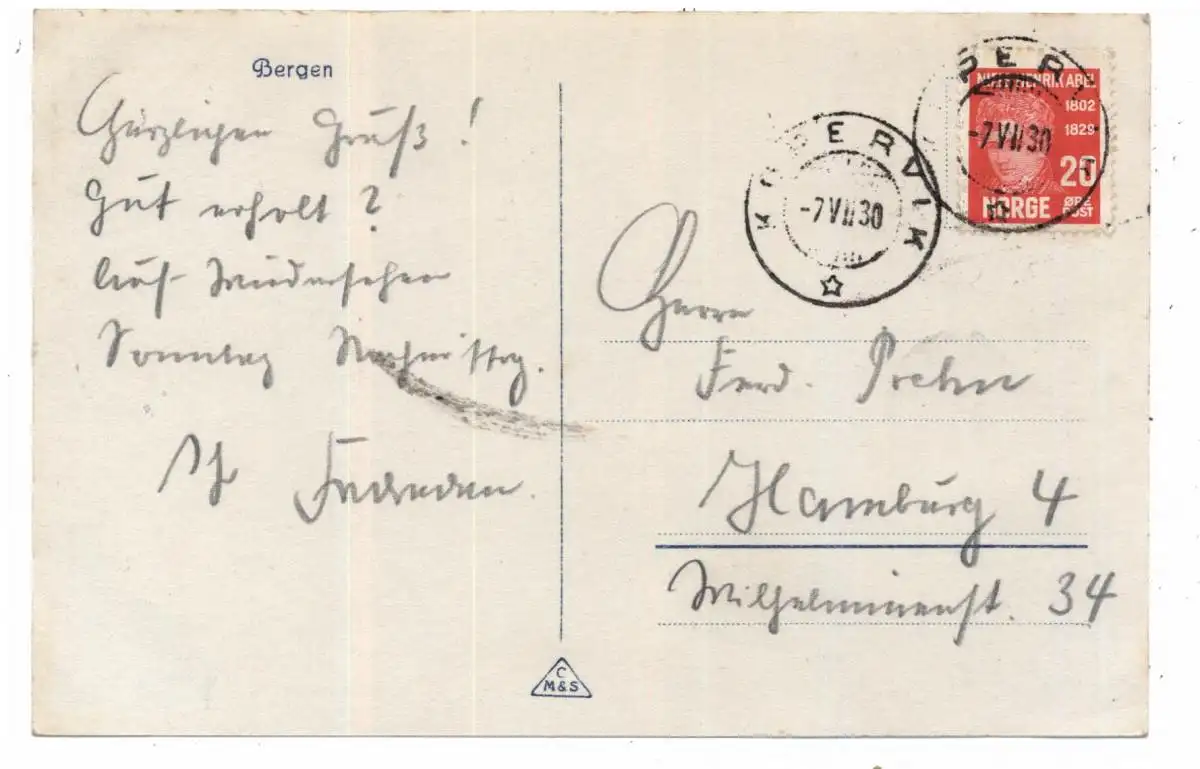 Bergen
Herzlichen Gruß!
Gut erholt?
Auf Wiedersehen
Sonntag Nachmittag.
Ihr
Herrn
Ferd. Prehn
Hamburg 4
Wilhelminenst. 34
KOPERVIK
-7 VII 30
KOPERVIK
-7 VII 30
NIELS HENRIK ABEL
1802
1829
20
NORGE
ØRE
POST
C
M&S